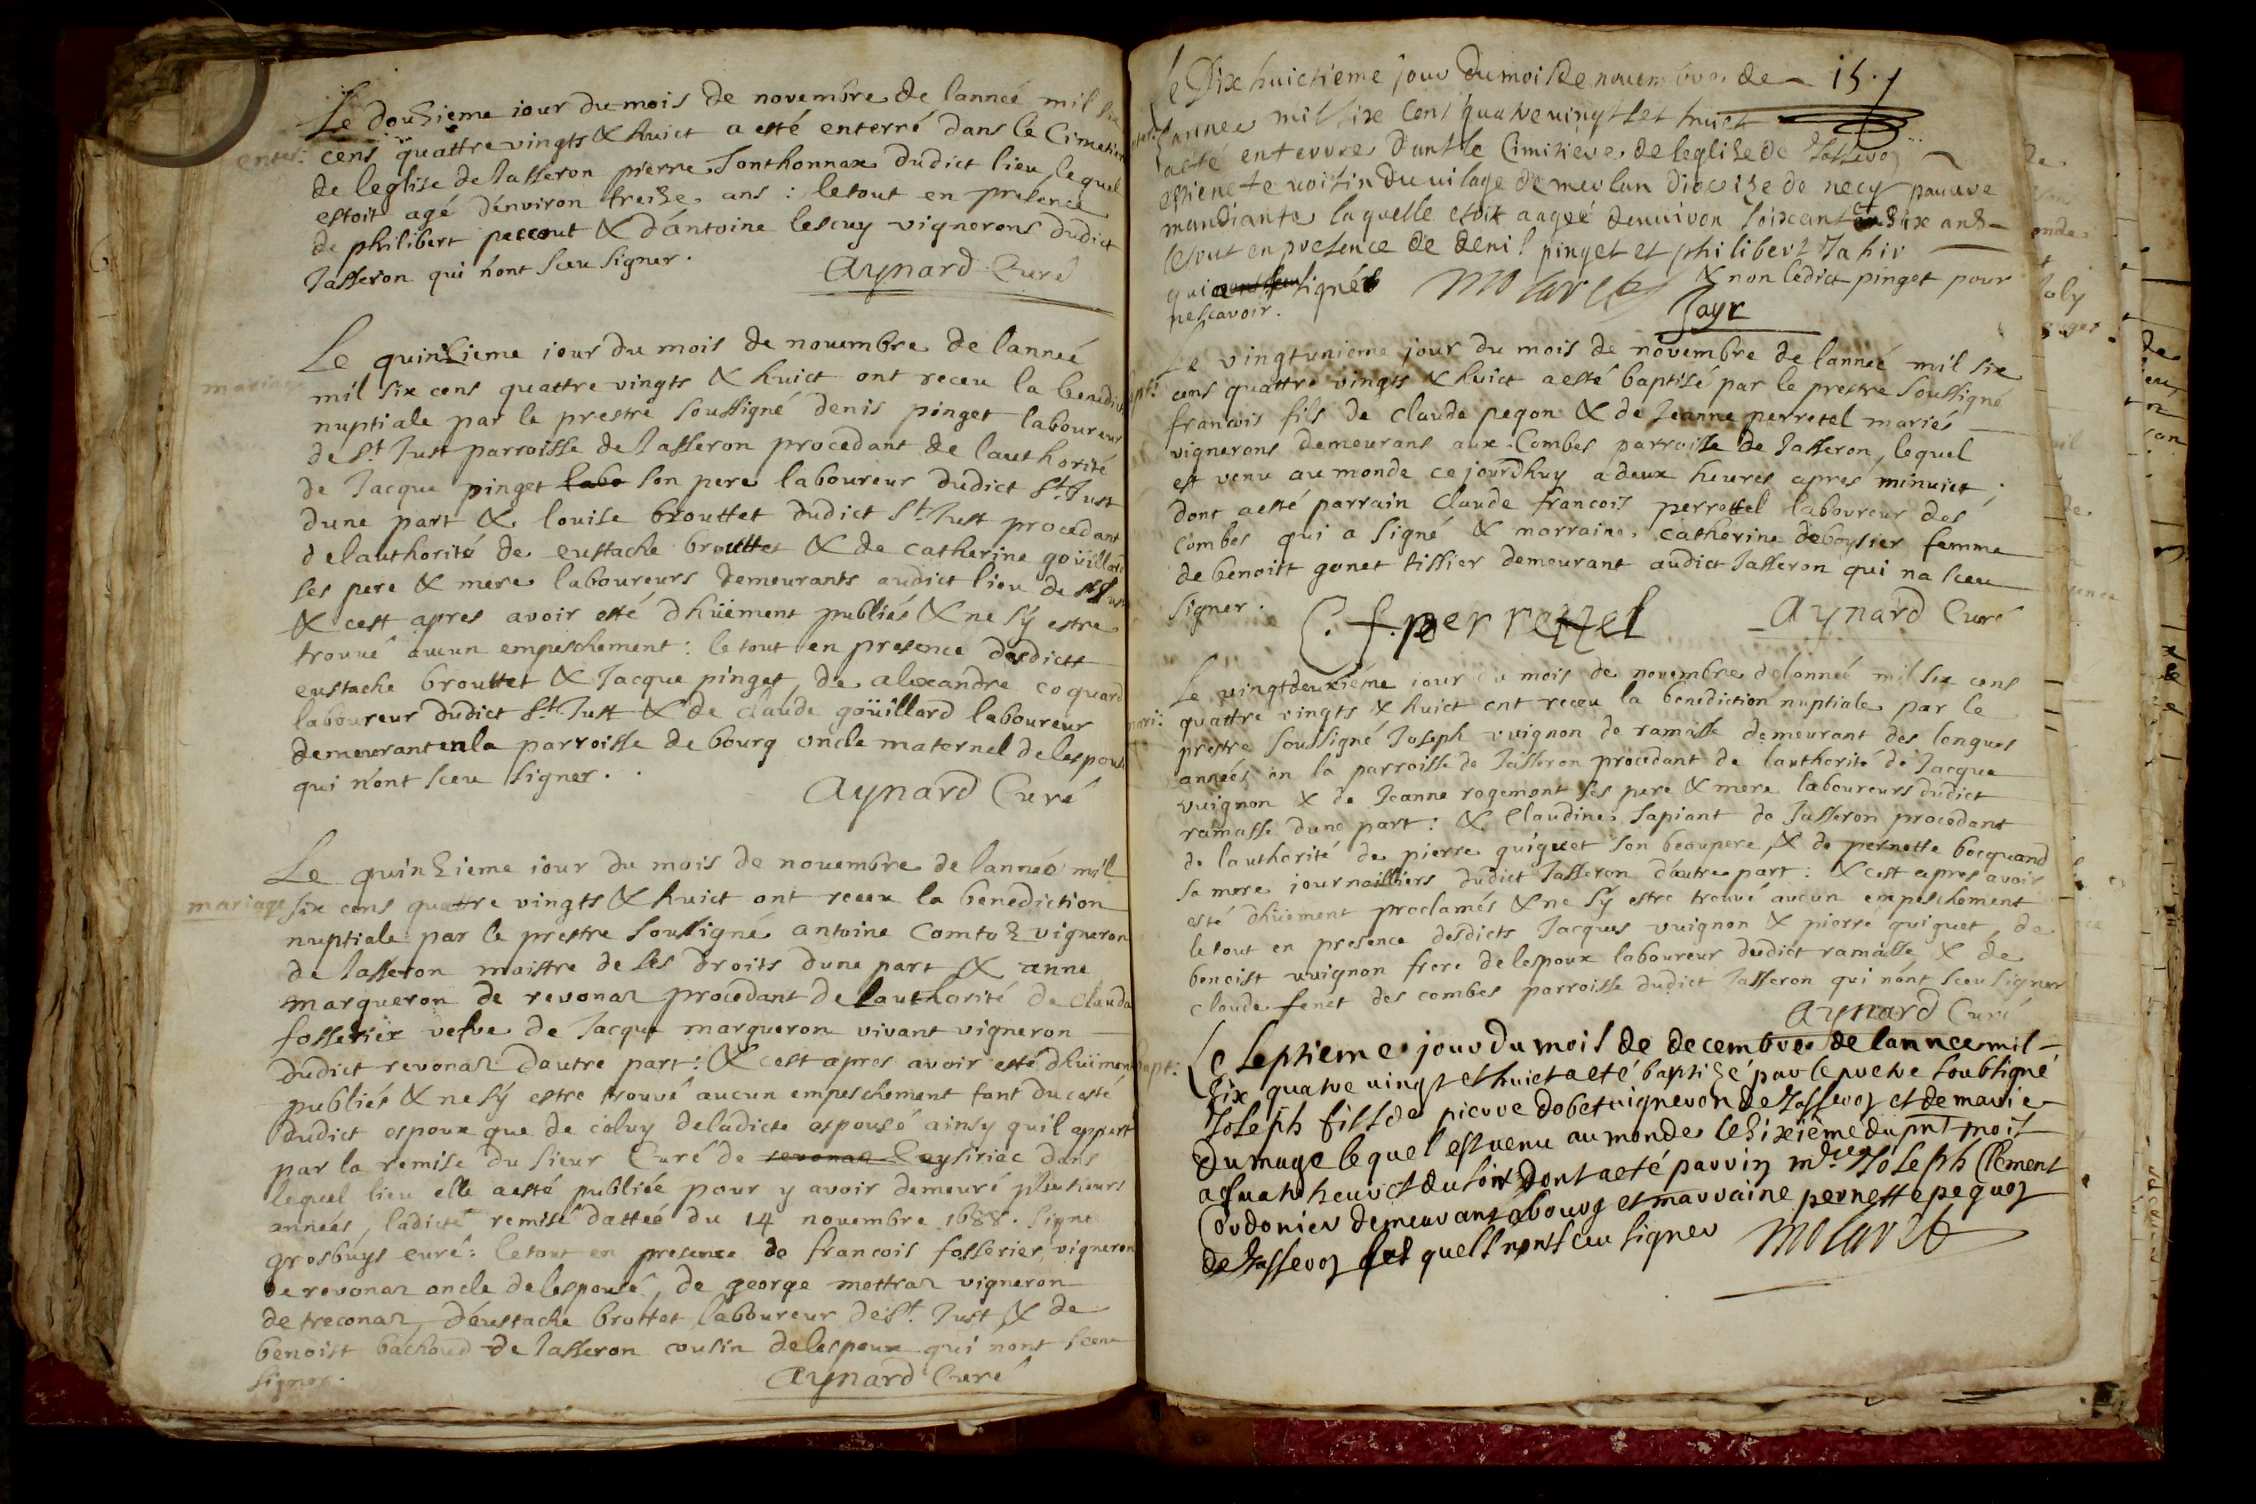 Le douzieme iour du mois de novembre de lanneé mil six
enter:
cens quattre vingts & huict a esté enterré dans le Cimetiere
de leglise de Jasseron pierre Tonthonnax dudict lieu, lequel
estoit agé d'environ treize ans : le tout en presence
de philibert peccout & d'antoine lescuy vignerons dudict
Jasseron qui n'ont sceu signer.
Aynard Curé
Le quinzieme iour du mois de nouembre de lanneé
mariage
mil six cens quattre vingts & huict ont receu la benedict
nuptiale par le prestre soussigné denis pinget laboureur
de St Just parroisse de Jasseron procedant de lauthorité
de Jacque pinget labo son pere laboureur dudict St Just
dune part & louise brouttet dudict St Just procedant
de lauthorité de eustache brouttet & de catherine goüillard
ses pere & mere laboureurs demeurants audict lieu de St Just
& cest apres avoir esté dhüement publiés & ne sÿ estre
trouué aucun empeschement : le tout en presence desdicts
eustache brouttet & Jacque pinget, de alexandre coquard
laboureur dudict St Just & de claude goüillard laboureur
demeurant en la parroisse de bourg oncle maternel de lespouse
qui n'ont sceu signer.
Aynard Curé
Le quinzieme iour du mois de nouembre de lanneé mil
mariage
six cens quattre vingts & huict ont receu la benediction
nuptiale par le prestre soussigné antoine Comtoz vigneron
de Jasseron maistre de ses droits dune part & anne
margueron de revonaz procedant de lauthorité de Clauda
fosserier vefve de Jacque margueron vivant vigneron
dudict revonaz dautre part : & cest apres avoir esté dhüement
publiés & ne sÿ estre trouvé aucun empeschement tant du costé
dudict espoux que de celuy de ladicte espouse ainsy quil appert
par la remise du sieur Curé de revonaz Ceysiriac dans
lequel lieu elle a esté publiée pour y avoir demeuré plusieurs
années, ladicte remise dattée du 14 novembre 1688. Signé
grosbuys curé : le tout en presence de francois fosserier vigneron
de revonaz oncle de lespouse, de george mettraz vigneron
de treconaz, d'eustache brottet laboureur de St. Just & de
benoist bachoud de Jasseron cousin de lespoux qui n'ont sceu
signer.
Aynard Curé
Le Dix huictieme jour du mois de nouembre de 15.7
lannee mil six cent quatre vingt et huict
a eté enterree dans le Cimitiere de leglize de Jasseron
estienete voisin du vilage de meulan dioceize de necy pauure
mandiante laquelle etoit aageé denuiron soixante et dix ans
le tout en presence de deni pinget et philibert Jahir
qui signés molard & non ledict pinget pour
ne scavoir.
Jayr
Le vingtunieme jour du mois de novembre de lanneé mil six
bpt:
cens quattre vingts & huict a esté baptisé par le prestre soussigné
francois fils de claude pegon & de Jeanne perretel mariés
vignerons demeurans aux Combes parroisse de Jasseron, lequel
est venu au monde ce jourdhuy a deux heures apres minuict ;
dont a esté parrain Claude francois perrettel laboureur des
Combes qui a signé & marraine catherine deboysier femme
de benoist gonet tissier demeurant audict Jasseron qui na sceu
signer.
C. f. perretzel
Aynard Curé
Le vingtdeuxiéme iour du mois de novembre de lanneé mil six cens
mari:
quattre vingts & huict ont receu la benediction nuptiale par le
prestre soussigné Joseph vuignon de ramasse demeurant des longues
années en la parroisse de Jasseron procedant de lauthorité de Jacque
vuignon & de Jeanne rogemont ses pere & mere laboureurs dudict
ramasse dune part : & Claudine Sapiant de Jasseron procedant
de lauthorité de pierre guiguet son beaupere & de pernette bocquand
sa mere journailliers dudict Jasseron d'autre part : & cest apres avoir
esté dhüement proclamés & ne sÿ estre trouvé aucun empeschement
le tout en presence desdicts Jacques vuignon & pierre guiguet, de
benoist vuignon frere de lespoux laboureur dudict ramasse & de
Claude fenet des combes parroisse dudict Jasseron qui n'ont sceu signer
Aynard Curé
Le Septieme jour du mois de decembre de lannee mil
bapt:
six quatre vingt et huict a eté baptizé par le pretre soubsigné
Joseph fils de pierre dobet vigneron de Jasseron et de marie
dumage lequel est venu au monde le sixieme du pnt mois
a quatre heures du soir dont a eté parrin Joseph Clement
Cordonier demeurant a bourg et marraine pernette peguoz
de Jasseron les quels nont sceu signer molard